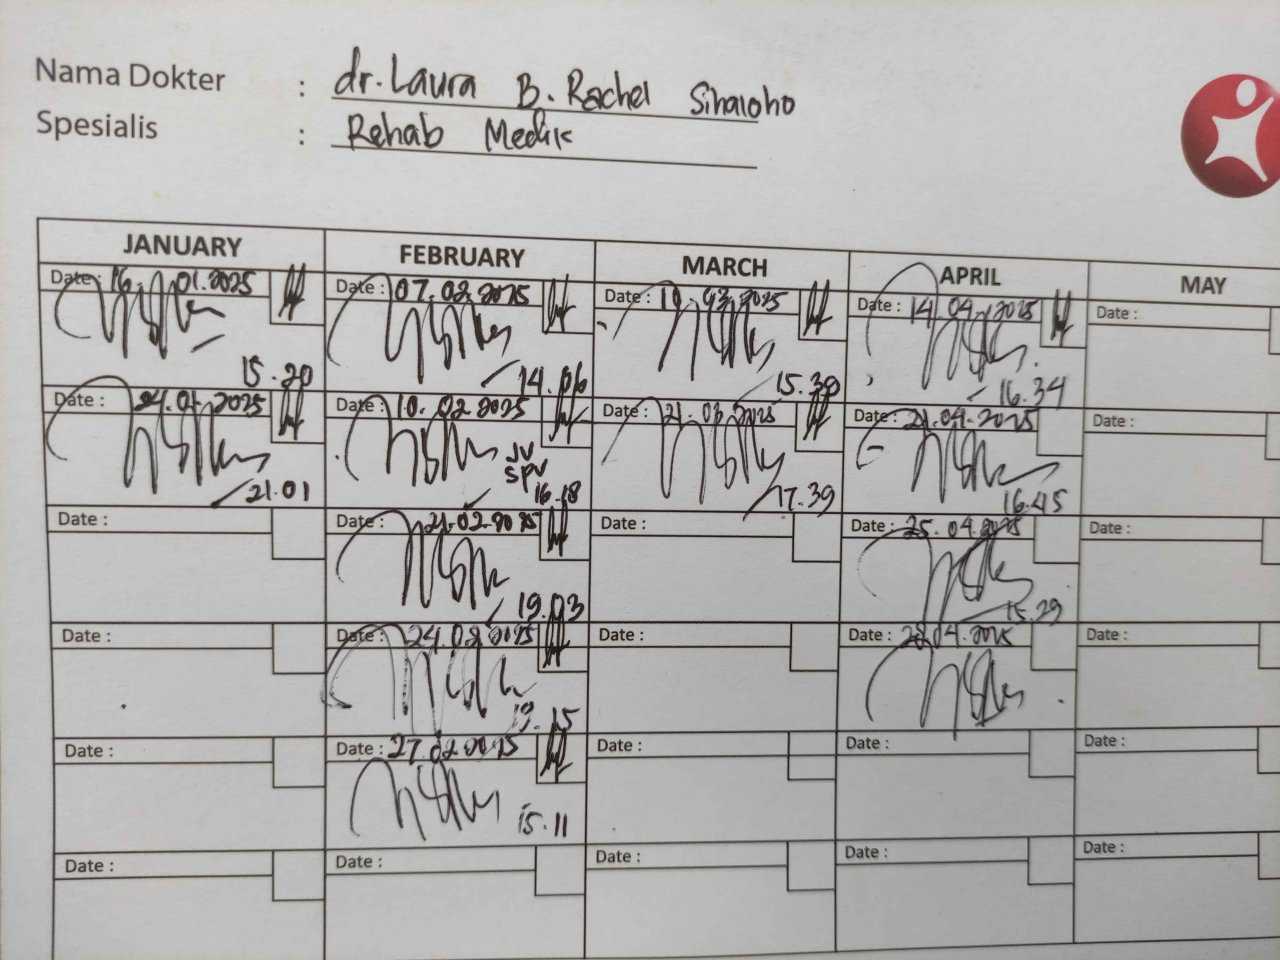 Nama Dokter : dr. Laura B. Rachel Sihaloho
Spesialis : Rehab Medik
JANUARY FEBRUARY MARCH APRIL MAY
Date : 16.01.2025 Date : 07.02.2025 Date : Date : 14.04.2025 Date :
15.20 14.06 15.30 16.34
Date : 24.01.2025 Date : 10.02.2025 Date : 21.03.2025 Date : 21.04.2025 Date :
JV
SPV
21.01 16.18 17.39 16.45
Date : Date : 21.02.2025 Date : Date : 25.04.2025 Date :
19.03 15.29
Date : Date : 24.02.2025 Date : Date : 28.04.2025 Date :
19.15
Date : Date : 27.02.2025 Date : Date : Date :
15.11
Date : Date : Date : Date : Date :